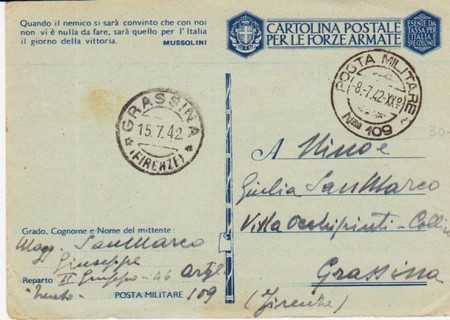 Quando il nemico si sarà convinto che con noi
non vi è nulla da fare, sarà quello per l'Italia
il giorno della vittoria. MUSSOLINI
CARTOLINA POSTALE
PER LE FORZE ARMATE
ESENTE DA
TASSA PER
L'ITALIA
E LE COLONIE
GRASSINA
15.7.42
(FIRENZE)
POSTA MILITARE
-8.-7.42-XX
109
A Nino e
Giulia SanMarco
Villa Occhipinti - Colline
Grassina
(Firenze)
Grado, Cognome e Nome del mittente:
Magg. SanMarco
Giuseppe
Reparto II Gruppo - 46 Artgl.
"Trento" POSTA MILITARE 109